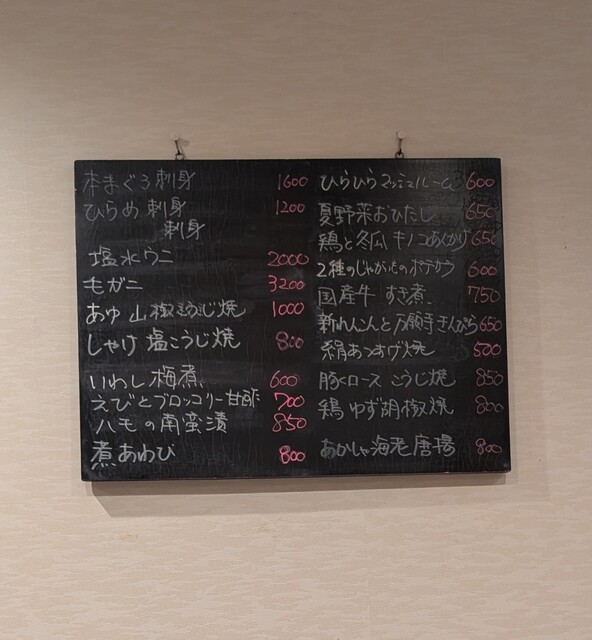 本まぐろ刺身 1600
ひらめ刺身 1200
刺身
塩水ウニ 2000
毛ガニ 3200
あゆ山椒こうじ焼 1000
しゃけ塩こうじ焼 800
いわし梅煮 600
えびとブロッコリー甘酢 700
ハモの南蛮漬 850
煮あわび 800
ひらひらマッシュルーム 600
夏野菜おひたし 650
鶏と冬瓜キノコあんかけ 650
2種のじゃがいものポテサラ 600
国産牛すき煮 750
新れんこんと万願寺きんぴら 650
絹あつあげ焼 500
豚ロースこうじ焼 850
鶏ゆず胡椒焼 800
あかしゃ海老唐揚 800